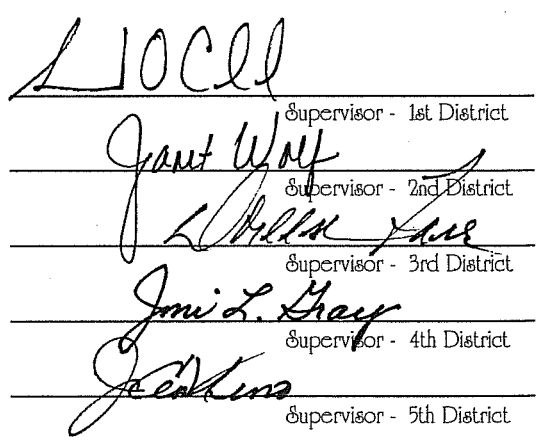 Supervisor - 1st District
Janet Wolf
Supervisor - 2nd District
Supervisor - 3rd District
Joni L. Gray
Supervisor - 4th District
Supervisor - 5th District